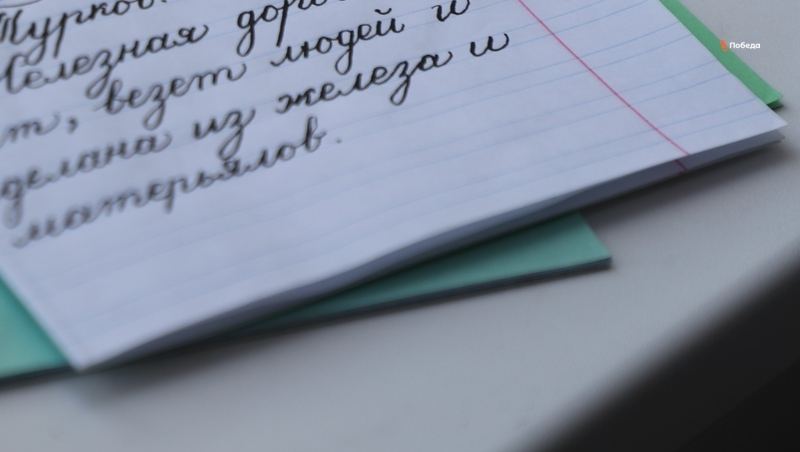 Турков
Железная доро
т, везет людей и
делана из железа и
матерьялов.
Победа